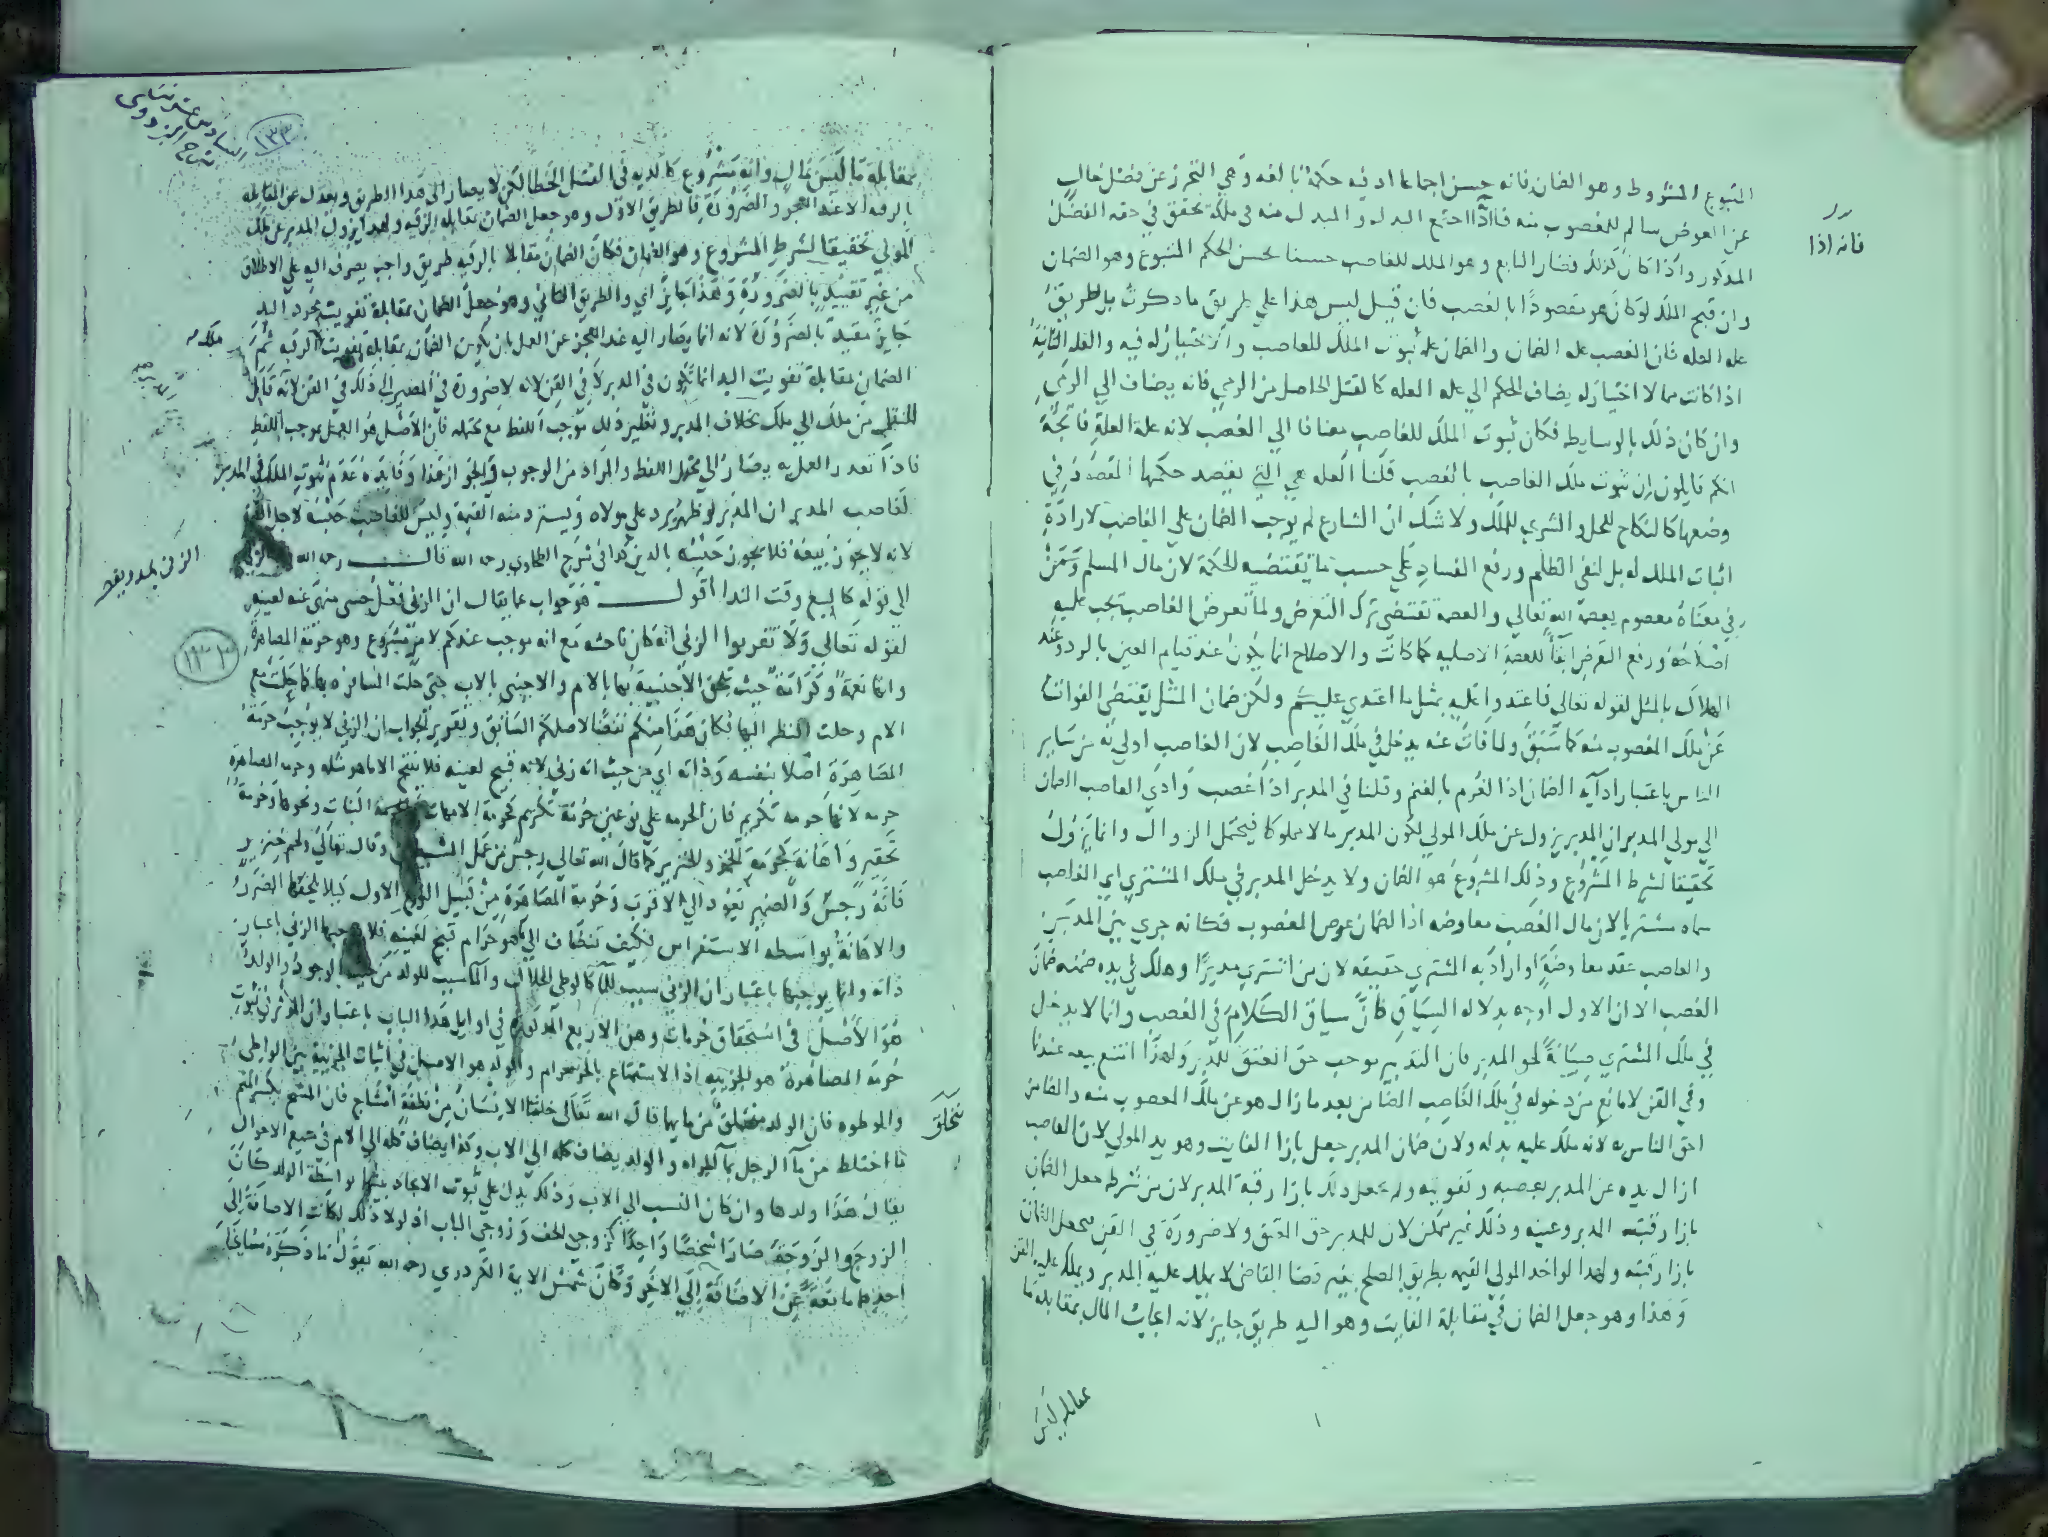 المتبوع المشروط وهو الضمان فانه حسن اجماعا اذ فيه حكمة بالغه وهي التحرز عن فضل خال
عن العوض سالم للمغصوب منه فاذا اجتمع البدل والمبدل منه في ملكه تحقق في حقه الفضل
فانه اذا
المذكور واذا كان كذلك فصار التابع وهو الملك للغاصب حسنا لحسن الحكم المتبوع وهو الضمان
وان قبح الملك لو كان هو مقصودا بالغصب فان قيل ليس هذا علي طريق ما ذكرت بل طريق
عله العله فان الغصب عله الضمان والضمان عله ثبوت الملك للغاصب ولا اختيار له فيه والعله الثانية
اذا كانت مما لا اختيار له يضاف الحكم الي عله العله كالقتل الحاصل من الرمي فانه يضاف الي الرمي
وان كان ذلك بالوسايط فكان ثبوت الملك للغاصب مضافا الي الغصب لانه علة العلة
انكم قايلون ان ثبوت ملك الغاصب بالغصب قلنا العله هي التي يقصد حكمها المقصود في
وضعها كالنكاح للحل والشري للملك ولا شك ان الشارع لم يوجب الضمان علي الغاصب لارادة
اثبات الملك له بل لنفي الظلم ورفع الفساد علي حسب ما يقتضيه الحكمة لان مال المسلم ومن
في معناه معصوم بعصمة الله تعالي والعصمة تقتضي ترك التعرض ولما تعرض الغاصب يجب عليه
اصلاحه ورفع التعرض ابقاء للعصمة الاصليه كما كانت والاصلاح انما يكون عند قيام العين بالرد وعند
الهلاك بالمثل لقوله تعالي فاعتدوا عليه بمثل ما اعتدي عليكم ولكن ضمان المثل يقتضي الفوات
عن ملك المغصوب منه كما سبق ولما فات عنه يدخل في ملك الغاصب لان الغاصب اولي به من ساير
الناس باعتبار ادايه الضمان اذ الغرم بالغنم وقلنا في المدبر اذا غصب وادي الغاصب الضمان
الي مولي المدبر ان المدبر يزول عن ملك المولي لكون المدبر مالا مملوكا فيحتمل الزوال وانما يزول
تحقيقا لشرط المشروع وذلك المشروع هو الضمان ولا يدخل المدبر في ملك المشتري اي الغاصب
سماه مشتريا لان مال الغصب معاوضه اذ الضمان عوض المغصوب فكانه جري بين المدبر
والغاصب عقد معاوضة او اراد به المشتري حقيقه لان من اشتري مدبرا وهلك في يده ضمنه ضمان
الغصب الا ان الاول اوجه بدلاله السياق كان سياق الكلام في الغصب وانما لا يدخل
في ملك المشتري صيانة لحق المدبر فان التدبير يوجب حق العتق للمدبر ولهذا امتنع بيعه عندنا
وفي القن لا مانع من دخوله في ملك الغاصب الضامن بعد ما زال هو عن ملك المغصوب منه والضامن
احق الناس به لانه ملك عليه بدله ولان ضمان المدبر جعل بازا الفايت وهو يد المولي لان الغاصب
ازال يده عن المدبر بغصبه وتفويته ولم يجعل ذلك بازا رقبة المدبر لان من شرطه جعل الضمان
بازا رقبته المدبر وعينه وذلك غير ممكن لان للمدبر حق العتق ولا ضرورة في القن فجعل الضمان
بازا رقبته ولهذا لو اخذ المولي القيمه بطريق الصلح بغير قضا القاضي لا يملك عليه المدبر ويملك عليه القن
وهذا وهو جعل الضمان في مقابلة الفايت وهو اليد طريق جايز لانه ايجاب المال بمقابله ما
بمقابله ما ليس
السادس عشر
شرح البزدوي
١٣٣
بمقابلة ما ليس بمال وانه مشروع كالديه في القتل الخطا لكن لا يصار الي هذا الطريق ويعدل عن المقابله
بالرقبه الا عند العجز والضرورة فالطريق الاول وهو جعل الضمان بمقابله الرقبه ولهذا يزول المدبر عن ملك
المولي تحقيقا لشرط المشروع وهو الضمان فكان الضمان مقابلا بالرقبه طريق واجب يصرف اليه علي الاطلاق
من غير تقييد بالضرورة وهذا جايز اي والطريق الثاني وهو جعل الضمان بمقابلة تفويت مجرد اليد
جايز مقيد بالضرورة لانه انما يصار اليه عند العجز عن العمل بان يكون الضمان بمقابلة تفويت الرقبه ثم
الضمان بمقابلة تفويت اليد انما تكون في المدبر لا في القن لانه لا ضرورة في المصير الي ذلك في القن لانه قابل
للنقل من ملك الي ملك بخلاف المدبر ونظير ذلك موجب اللفظ مع محتمله فان الاصل هو العمل بموجب اللفظ
فاذا تعذر العمل به يصار الي محتمل اللفظ والمراد من الوجوب والجواز هذا وفايدة عدم ثبوت الملك في المدبر
لغاصب المدبر ان المدبر لو ظهر يرد علي مولاه ويسترد منه القيمة وليس للغاصب حبسه لاجل
لانه لا يجوز بيعه فلا يجوز حبسه بالدين كذا في شرح الطحاوي رحمه الله قال رحمه الله
الزني
الي قوله كالبيع وقت الندا اقول فهو جواب عما يقال ان الزني فعل حسي منهي عنه لعينه
لقوله تعالي ولا تقربوا الزني انه كان فاحشه مع انه يوجب عندكم لامر مشروع وهو حرمة المصاهرة
١٣٣
وانها نعمة وكرامة حيث تلحق الاجنبية بها بالام والاجنبي بالاب حتي حلت المسافره بها كما حلت مع
الام وحلت النظر اليها فكان هذا منكم نقضا لاصلكم السابق وتقرير الجواب ان الزني لا يوجب حرمة
المصاهرة اصلا بنفسه وذاته اي من حيث انه زني لانه قبيح لعينه فلا ينتج الا ما هو مثله وحرمه المصاهرة
حرمه لانها حرمه تكريم فان الحرمه علي نوعين حرمة تكريم كحرمة الامهات وحرمة البنات ونحوها وحرمة
تحقير واهانة كحرمة الخمر والخنزير كما قال الله تعالي رجس من عمل الشيطان وقال تعالي ولحم خنزير
فانه رجس والضمير يعود الي الاقرب وحرمة المصاهرة من قبيل النوع الاول كيلا يلحقها الضرر
والاهانة بواسطه الاستفراش فكيف تضاف الي ما هو حرام قبيح لعينه فلا يوجبها الزني باعتبار
ذاته وانما يوجبها باعتبار ان الزني سبب للماء كالوطي الحلال والماء سبب للولد من حيث الوجود والولد
هو الاصل في استحقاق حرمات وهن الاربع المذكوره في اوايل هذا الباب باعتبار ان المؤثر في ثبوت
حرمة المصاهرة هو الجزييه اذ الاستمتاع بالجزء حرام والولد هو الاصل في اثبات الجزييه بين الواطي
والموطوه فان الولد من مايهما قال الله تعالي خلقنا الانسان من نطفة امشاج فان المشج بكسر الميم
يتخلق
ما اختلط من ماء الرجل بماء المراه والولد يضاف كله الي الاب وكذا يضاف كله الي الام في جميع الاحوال
يقال هذا ولدها وان كان النسب الي الاب وذلك يدل علي ثبوت الاتحاد بينهما بواسطة الولد كان
الزوج والزوجة صارا شخصا واحدا كزوجي الخف وزوجي الباب اذ لولا ذلك لكانت الاضافة الي
احدهما مانعة عن الاضافة الي الاخر وكان شمس الايمة الكردري رحمه الله يقول ما ذكره مشايخنا